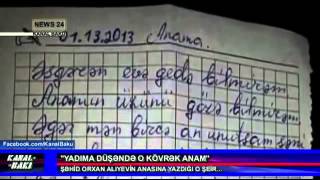 NEWS 24
KANAL BAKU
01.13.2013 Anama.
Әsgәrәm evә gedә bilmirәm
Anamın üzünü görә bilmirәm
Әgәr mәn bircә an unutsam sәni
Facebook.com/KanalBaku
KANAL BAKI
"YADIMA DÜŞƏNDƏ O KÖVRƏK ANAM"
ŞƏHİD ORXAN ALIYEVİN ANASINA YAZDIĞI O ŞEİR...